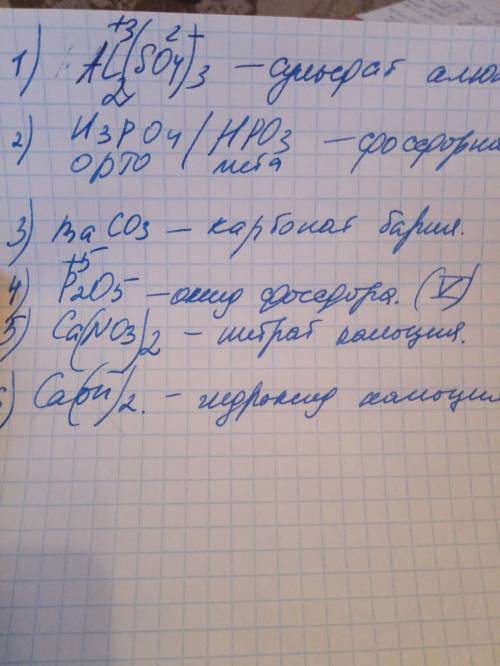 1) Al2(SO4)3 — сульфат
+3 2-
2) H3PO4 / HPO3 —
орто мета
3) BaCO3 — карбонат бария.
+5
4) P2O5 — оксид фосфора. (V)
5) Ca(NO3)2 — нитрат кальция.
6) Ca(OH)2. — гидроксид кальция